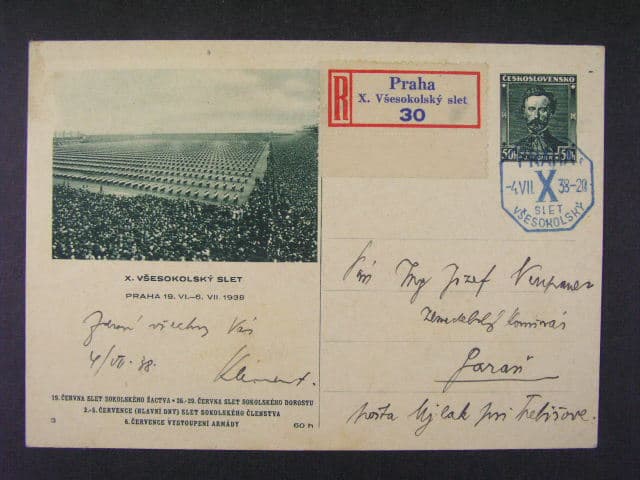 R
Praha
X. Všesokolský slet
30
ČESKOSLOVENSKO
50h 50h
PRAHA 1
-4.VII. X 38-20
SLET
VŠESOKOLSKÝ
X. VŠESOKOLSKÝ SLET
PRAHA 19. VI.–6. VII. 1938
Zdraví všechny Vás
4/VII. 38.
Klement.
19. ČERVNA SLET SOKOLSKÉHO ŽACTVA • 26.-29. ČERVNA SLET SOKOLSKÉHO DOROSTU
2.-5. ČERVENCE (HLAVNÍ DNY) SLET SOKOLSKÉHO ČLENSTVA
6. ČERVENCE VYSTOUPENÍ ARMÁDY
3
60 h
Ing Jozef
Garaň
pošta Ujlak pri Trebišove.